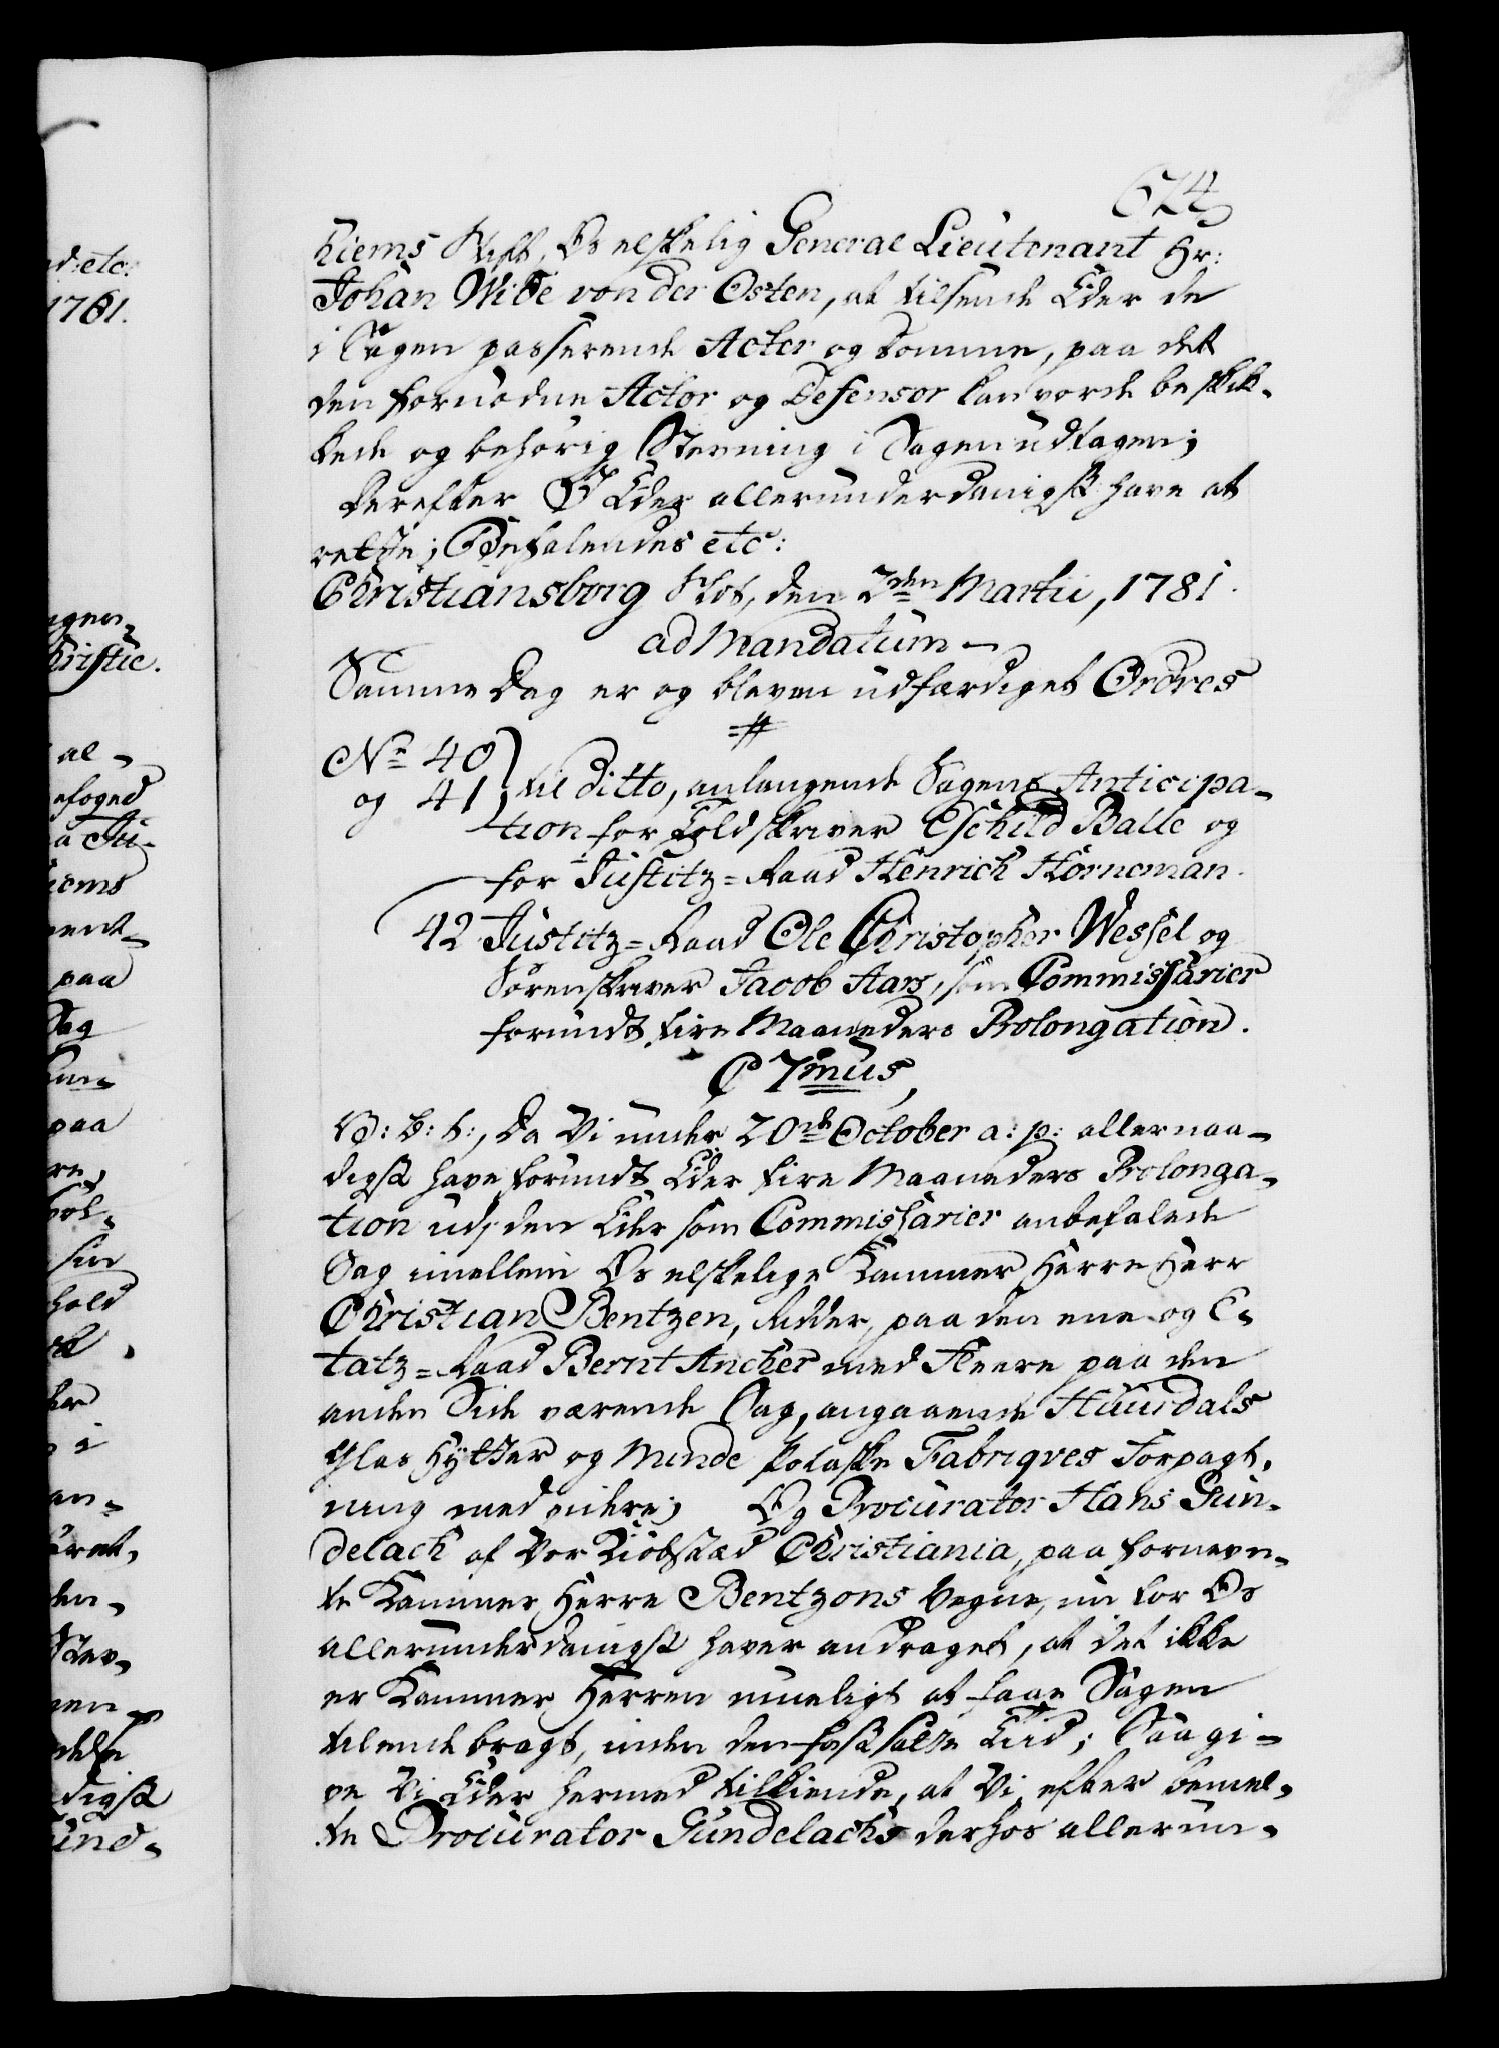 674
hiems Stift, Os elskelig General Lieutenant Hr:
Johan Wibe von der Osten, at tilsende Eder de
i Sagen passerende Acter og Domme, paa det
den fornødne Actor og Defensor kan vorde beskik-
kede og behørig Stevning i Sagen udtagen;
Derefter I Eder allerunderdanigst have at
rette; Befalendes etc:
Christiansborg Slot, den 2den Martii, 1781.
ad Mandatum
Samme Dag er og bleven udfærdiget Ordres
No 40
og 41 til ditto, anlangende Sagens Anticipa-
tion for Toldskriver Eschild Balle og
for Justitz-Raad Henrich Horneman.
42 Justitz-Raad Ole Christopher Wessel og
Sorenskriver Jacob Aars, som Commissarier
forundt fire Maaneders Prolongation.
C 7mus
V: G: T:, Da Vi under 20de October a: p: allernaa-
digst have forundt Eder fire Maaneders Prolonga-
tion udj den Eder som Commissarier anbefalede
Sag imellem Os elskelige Kammer Herre Herr
Christian Bentzen, Ridder, paa den ene og E-
tatz-Raad Bernt Ancher med Fleere paa den
anden Side værende Sag, angaaende Huurdals
Glas Hytter og Minde Potaske Fabriqves Forpagt-
ning med videre; Og Procurator Hans Gun-
delach af Vor Kiøbstæd Christiania, paa fornevn-
te Kammer Herre Bentzons Vegne, nu for Os
allerunderdanigst haver andraget, at det ikke
er Kammer Herren mueligt at faae Sagen
tilendebragt, inden den fastsatte Tiid; Saa gi-
ve Vi Eder hermed tilkiende, at Vi efter bemel-
te Procurator Gundelachs derhos allerun-